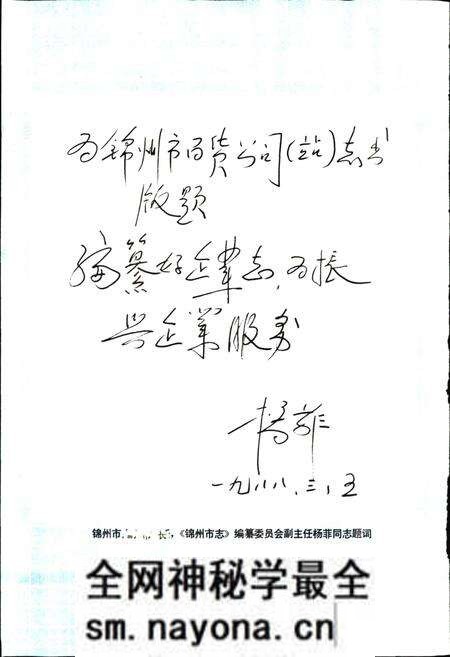 为锦州市百货公司(站)志出
版题
编纂好企业志,为振
兴企業服务
杨菲
一九八八.三.五
锦州市 长,《锦州市志》编纂委员会副主任杨菲同志题词
全网神秘学最全
sm.nayona.cn